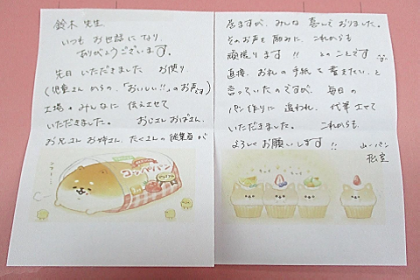 鈴木 先生
いつも お世話になり
ありがとうございます。
先日 いただきました お便り
(児童さん からの、「おいしい!!」のお声です)
工場の みんなに 伝えさせて
いただきました。 おじさん おばさん、
お兄さん お姉さん、たくさんの 従業員 が
居ますが、みんな 喜んで おりました。
そのお声を 励みに、これからも
頑張ります!! とのことです
直接、お礼の手紙を 書きたい、と
言っていたのですが、毎日の
パン作りに 追われ、代筆させて
いただきました。 これからも
よろしくお願いします!!
コッペパン